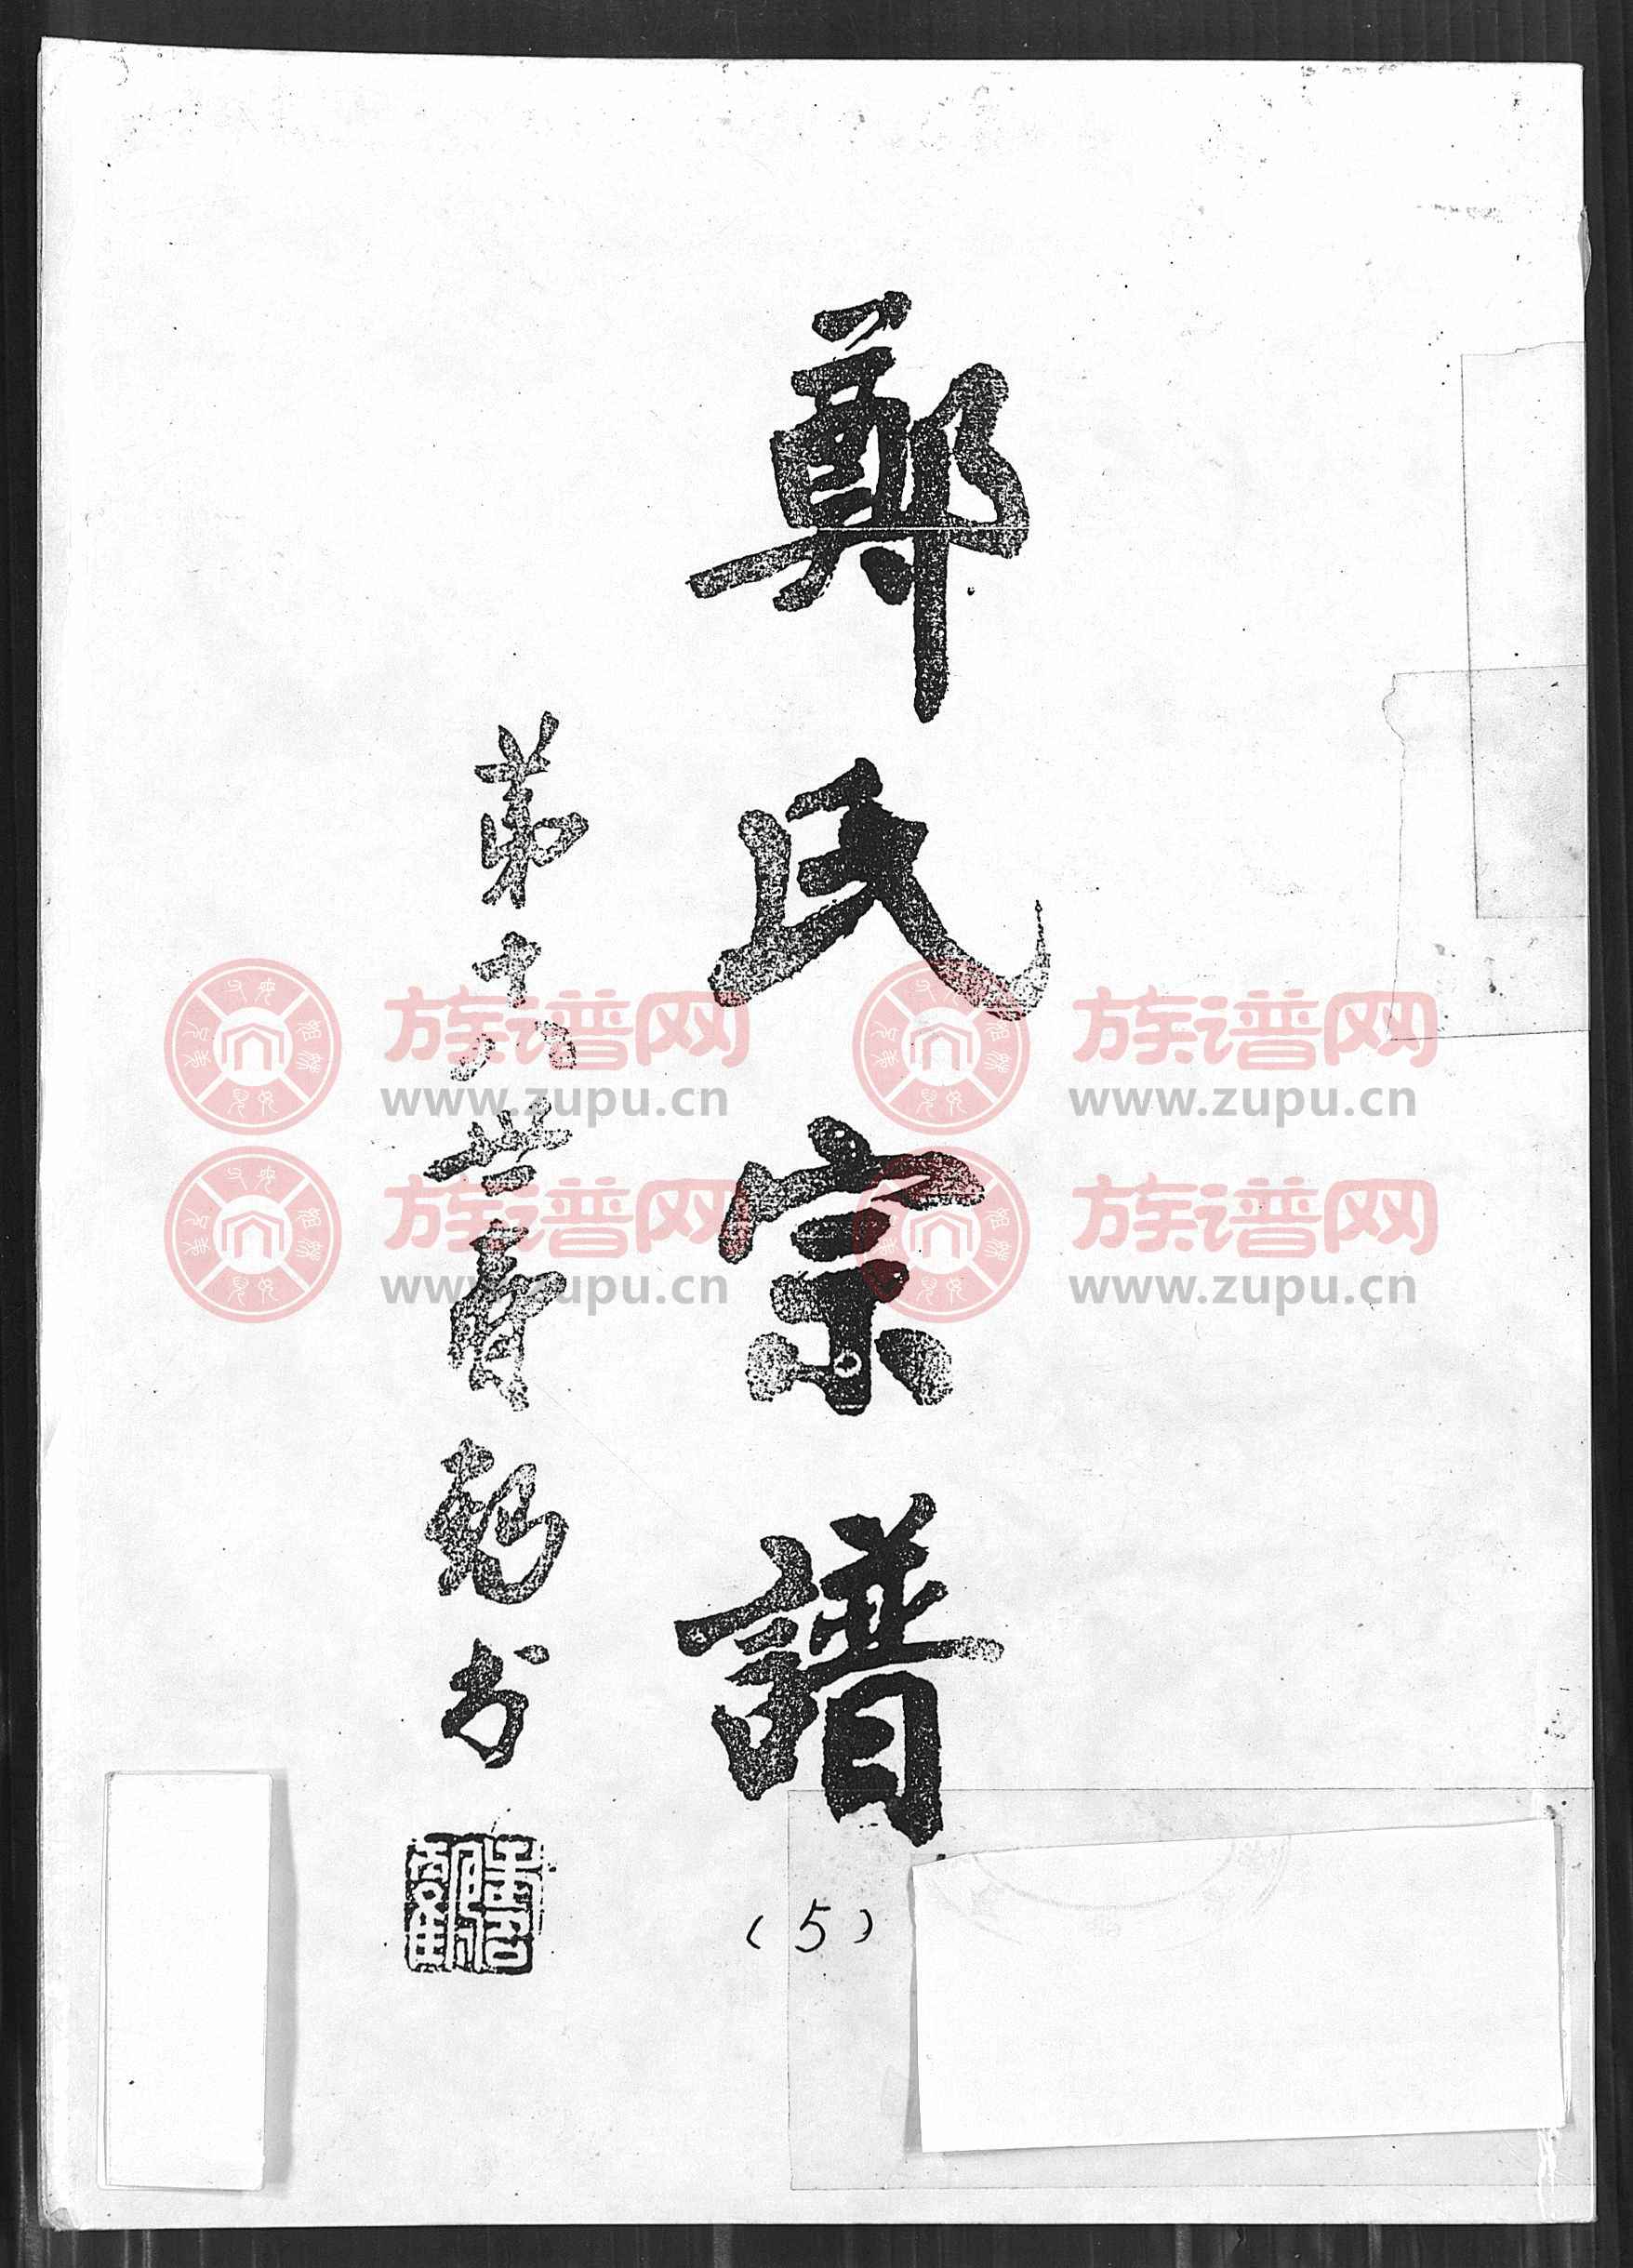 鄭氏宗譜
第十八世裔勉书
(5)
族谱网 www.zupu.cn
族谱网 www.zupu.cn
族谱网 www.zupu.cn
族谱网 www.zupu.cn